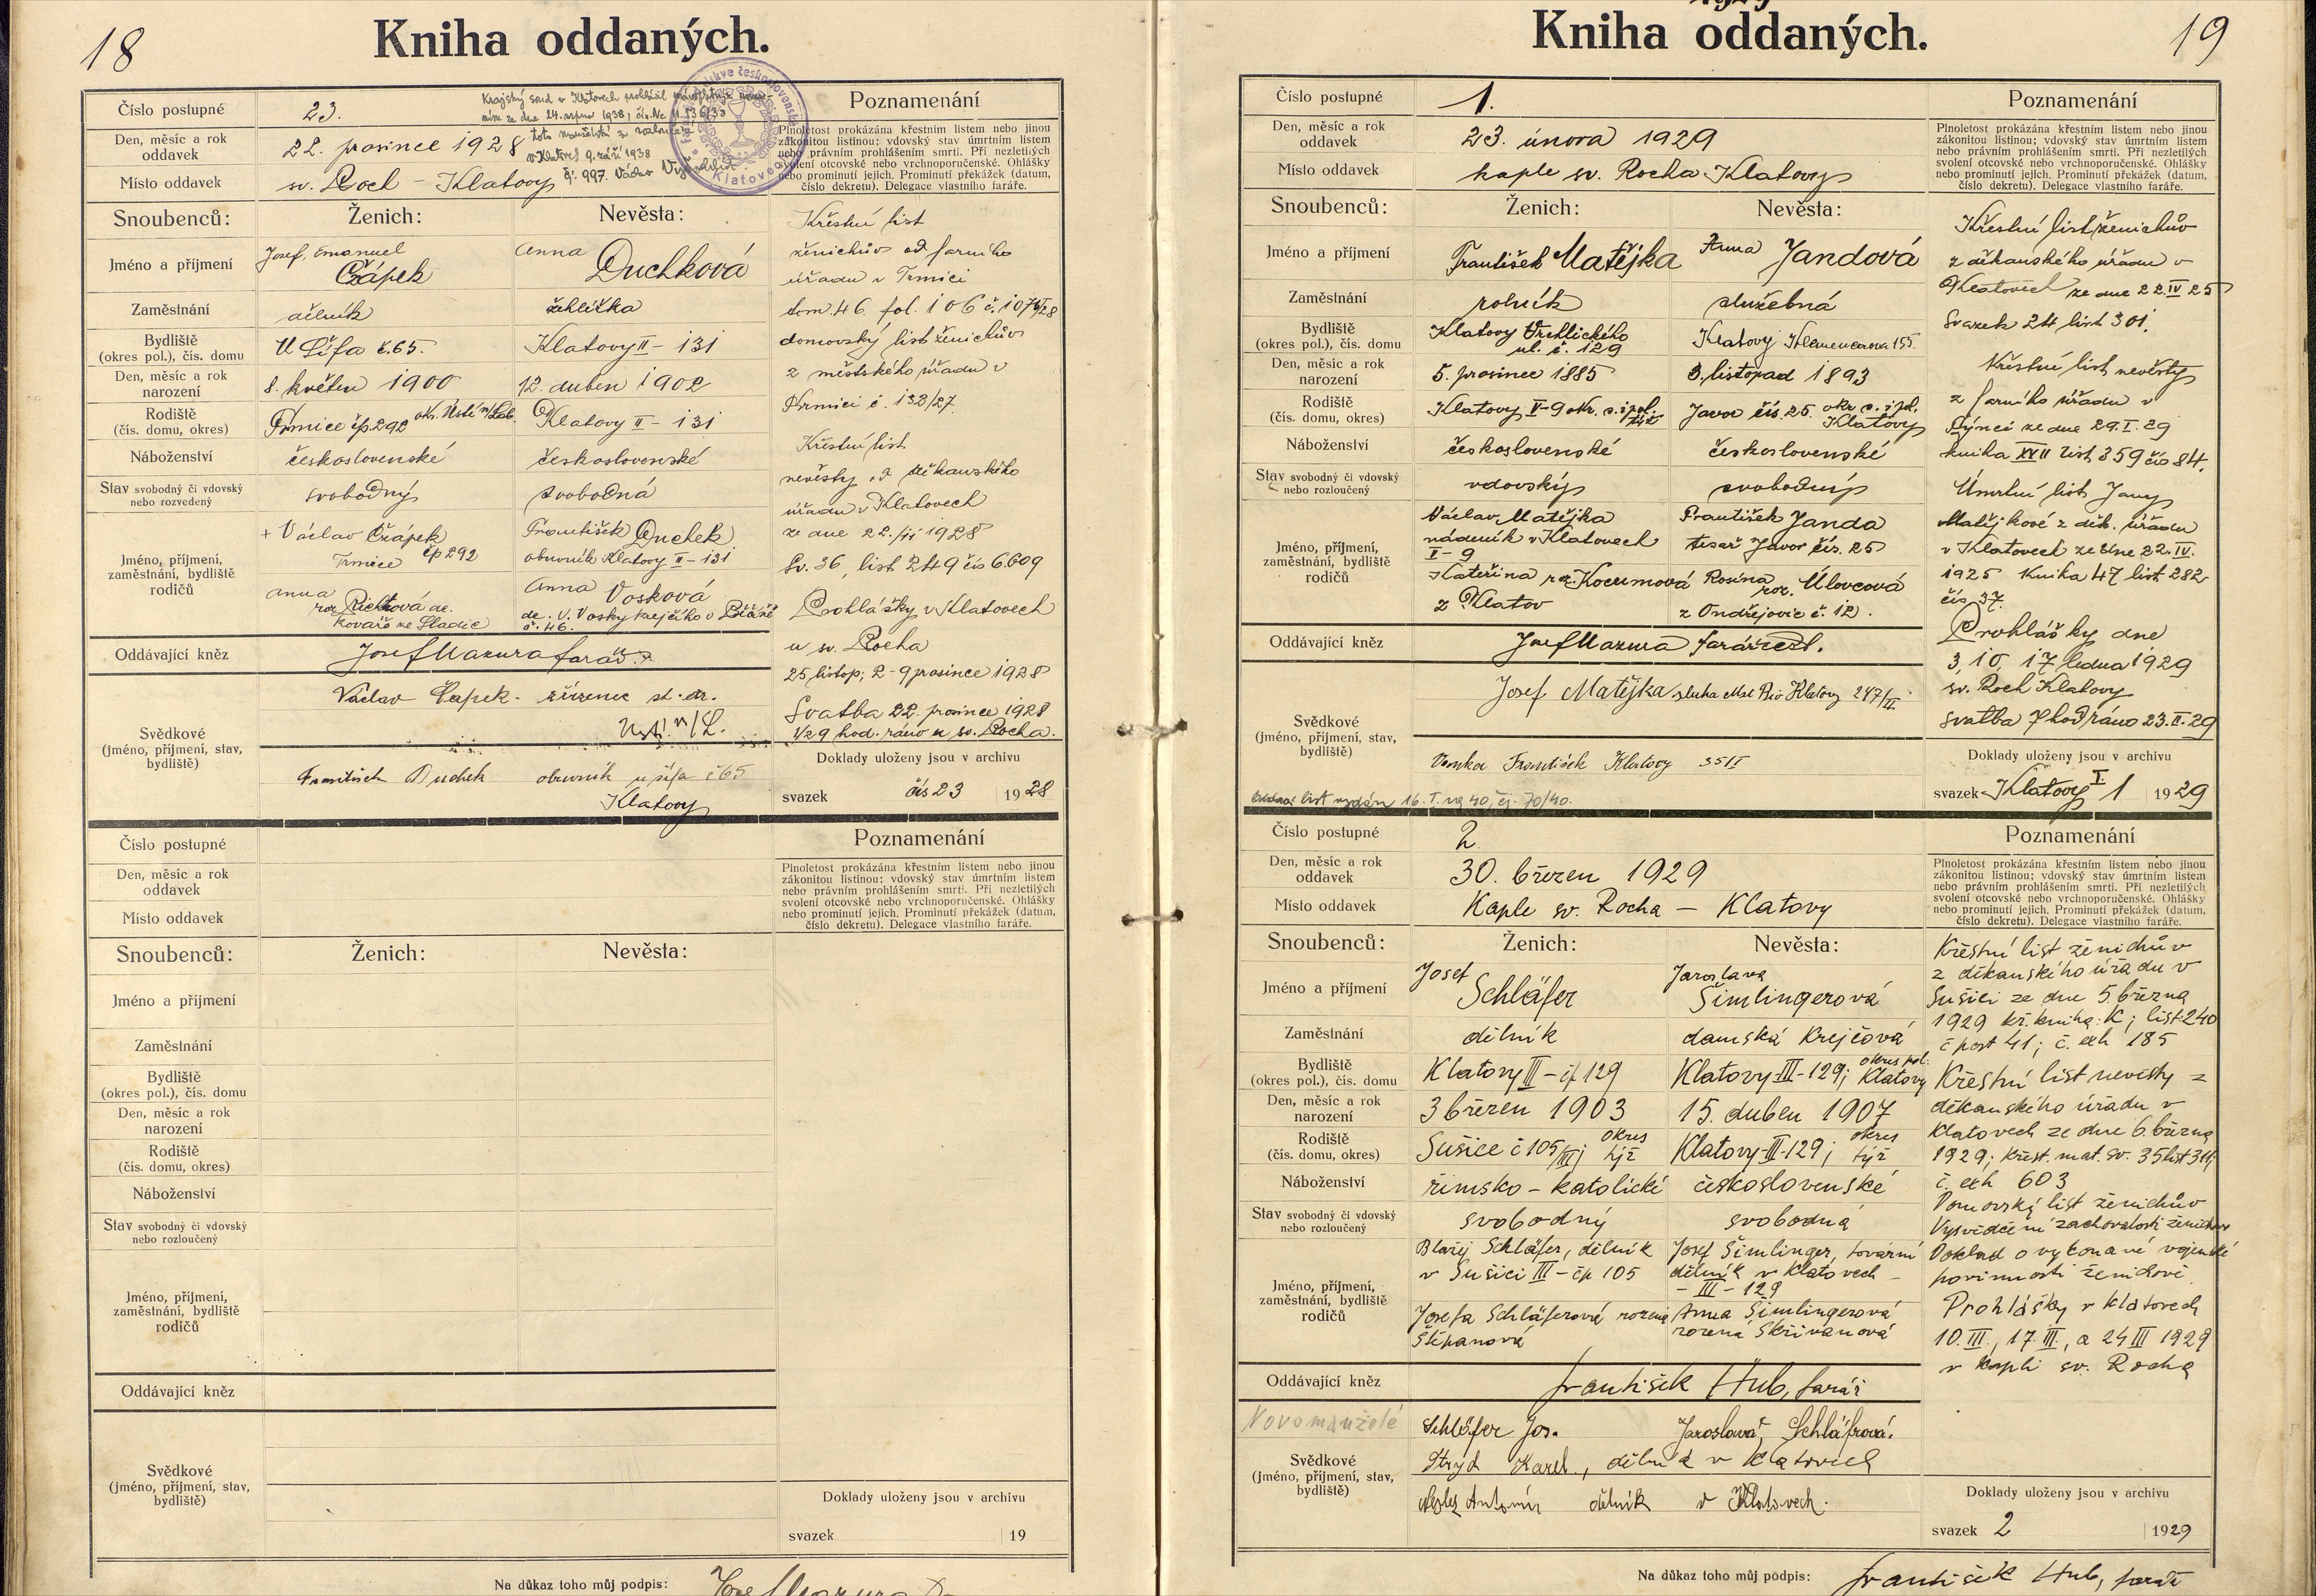 18
Kniha oddaných.
Číslo postupné
23.
Krajský soud v Klatovech prohlásil
ze dne 24. srpna 1938, čís. Nc II 136/38
toto manželství za
v Klatovech 9. září 1938
č. 997. Václav
Klatovech
Den, měsíc a rok oddavek
22. prosince 1928
Místo oddavek
sv. Roch - Klatovy
Poznamenání
Plnoletost prokázána křestním listem nebo jinou
zákonitou listinou; vdovský stav úmrtním listem
nebo právním prohlášením smrti. Při nezletilých
svolení otcovské nebo vrchnoporučenské. Ohlášky
nebo prominutí jejich. Prominutí překážek (datum,
číslo dekretu). Delegace vlastního faráře.
Snoubenců: Ženich: Nevěsta:
Jméno a příjmení
Josef, Emanuel
Čápek
Anna
Duchková
Zaměstnání
dělník
žehlířka
Bydliště
(okres pol.), čís. domu
U Šífa č. 65.
Klatovy II - 131
Den, měsíc a rok
narození
8. květen 1900
12. duben 1902
Rodiště
(čís. domu, okres)
Trmice čp. 292 okr. Ústí n/Lab.
Klatovy II - 131
Náboženství
československé
československé
Stav svobodný či vdovský
nebo rozvedený
svobodný
svobodná
Jméno, příjmení,
zaměstnání, bydliště
rodičů
+ Václav Čzápek
Trmice čp 292
Anna
roz. dc.
kováře ze
František Duchek
obuvník Klatovy II - 131
Anna Vosková
dc. V. Vosky krejčího v
č. 46.
Oddávající kněz
Josef Mazura farář
Svědkové
(jméno, příjmení, stav,
bydliště)
Václav Čapek - zřízenec st. dr.
Ústí n/L.
František Duchek obuvník u šífa č 65
Klatovy
Křestní list
ženichův od farního
úřadu v Trmici
tom. 46. fol. 106 č. 107
domovský list ženichův
z městského úřadu v
Trmici č. 132/27.
Křestní list
nevěsty od děkanského
úřadu v Klatovech
ze dne 22./11 1928
Sv. 36, list 249 čís 6.609
Prohlášky v Klatovech
u sv. Rocha
25 listop, 2 - 9 prosince 1928
Svatba 22. prosince 1928
1/2 9 hod. ráno u sv. Rocha.
Doklady uloženy jsou v archivu
svazek čís 23 1928
Číslo postupné
Den, měsíc a rok
oddavek
Místo oddavek
Poznamenání
Plnoletost prokázána křestním listem nebo jinou
zákonitou listinou; vdovský stav úmrtním listem
nebo právním prohlášením smrti. Při nezletilých
svolení otcovské nebo vrchnoporučenské. Ohlášky
nebo prominutí jejich. Prominutí překážek (datum,
číslo dekretu). Delegace vlastního faráře.
Snoubenců: Ženich: Nevěsta:
Jméno a příjmení
Zaměstnání
Bydliště
(okres pol.), čís. domu
Den, měsíc a rok
narození
Rodiště
(čís. domu, okres)
Náboženství
Stav svobodný či vdovský
nebo rozloučený
Jméno, příjmení,
zaměstnání, bydliště
rodičů
Oddávající kněz
Svědkové
(jméno, příjmení, stav,
bydliště)
Doklady uloženy jsou v archivu
svazek 19
Na důkaz toho můj podpis:
19
Kniha oddaných.
Číslo postupné
1.
Den, měsíc a rok
oddavek
23. února 1929
Místo oddavek
kaple sv. Rocha Klatovy
Poznamenání
Plnoletost prokázána křestním listem nebo jinou
zákonitou listinou; vdovský stav úmrtním listem
nebo právním prohlášením smrti. Při nezletilých
svolení otcovské nebo vrchnoporučenské. Ohlášky
nebo prominutí jejich. Prominutí překážek (datum,
číslo dekretu). Delegace vlastního faráře.
Snoubenců: Ženich: Nevěsta:
Jméno a příjmení
František Matějka
Anna Jandová
Zaměstnání
rolník
služebná
Bydliště
(okres pol.), čís. domu
Klatovy Vrchlického
ul. č. 129
Klatovy 155.
Den, měsíc a rok
narození
5. prosince 1885
3. listopad 1893
Rodiště
(čís. domu, okres)
Klatovy V-9 okr. s. i pol.
týž
Javor čís. 25. okr. s. i pol.
Klatovy
Náboženství
československé
československé
Stav svobodný či vdovský
nebo rozloučený
vdovský
svobodný
Jméno, příjmení,
zaměstnání, bydliště
rodičů
Václav Matějka
nádeník v Klatovech
V - 9
Kateřina roz. Kocumová
z Klatov
František Janda
tesař Javor čís. 25
Rosina roz. Úlovcová
z Ondřejovic č. 12.
Oddávající kněz
Josef Mazura farář
Svědkové
(jméno, příjmení, stav,
bydliště)
Josef Matějka sluha Klatovy 247/II.
František Klatovy 35 I
list vydán 16. I. 1940, čj. 70/40.
Křestní list ženichův
z děkanského úřadu v
Klatovech ze dne 22. IV 25
Svazek 24 list 301.
Křestní list nevěsty
z farního úřadu v
Týnci ze dne 29. I. 29
kniha XVII list 359 čís 84.
Úmrtní list Jany
Matějkové z děk. úřadu
v Klatovech ze dne 22. IV.
1925 Kniha 47 list 282
čís 37.
Prohlášky dne
3, 10, 17 ledna 1929
sv. Roch Klatovy
svatba 7 hod ráno 23. II. 29
Doklady uloženy jsou v archivu
svazek Klatovy I. 1 1929
Číslo postupné
2.
Den, měsíc a rok
oddavek
30. březen 1929
Místo oddavek
Kaple sv. Rocha - Klatovy
Poznamenání
Plnoletost prokázána křestním listem nebo jinou
zákonitou listinou; vdovský stav úmrtním listem
nebo právním prohlášením smrti. Při nezletilých
svolení otcovské nebo vrchnoporučenské. Ohlášky
nebo prominutí jejich. Prominutí překážek (datum,
číslo dekretu). Delegace vlastního faráře.
Snoubenců: Ženich: Nevěsta:
Jméno a příjmení
Josef
Schläfer
Jaroslava
Šimlingerová
Zaměstnání
dělník
damská krejčová
Bydliště
(okres pol.), čís. domu
Klatovy III - čp 129
Klatovy III - 129; okres pol. Klatovy
Den, měsíc a rok
narození
3 březen 1903
15. duben 1907
Rodiště
(čís. domu, okres)
Sušice č 105/III; okres týž
Klatovy-III-129; okres týž
Náboženství
římsko - katolické
československé
Stav svobodný či vdovský
nebo rozloučený
svobodný
svobodná
Jméno, příjmení,
zaměstnání, bydliště
rodičů
Blažej Schläfer, dělník
v Sušici III - čp 105
Josefa Schläferová rozená
Štěpanová
Josef Šimlinger, tovární
dělník v Klatovech -
- III - 129
Anna Šimlingerová
rozená Skřivanová
Oddávající kněz
František Hub, farář
Novomanželé
Schläfer Jos.
Jaroslava Schläfrová.
Svědkové
(jméno, příjmení, stav,
bydliště)
Karel, dělník v Klatovech
Antonín dělník v Klatovech.
Křestní list ženichův
z děkanského úřadu v
Sušici ze dne 5. března
1929 kř. kniha: K; list: 240
č post 41; č. exh 185
Křestní list nevěsty z
děkanského úřadu v
Klatovech ze dne 6. března
1929; křest. mat. sv. 35 list 311;
č. exh 603
Domovský list ženichův
Vysvědčení zachovalosti ženichovo
Doklad o vykonané vojenské
povinnosti ženichově
Prohlášky v Klatovech
10. III., 17. III, a 24 III 1929
v kapli sv. Rocha
Doklady uloženy jsou v archivu
svazek 2 1929
Na důkaz toho můj podpis: František Hub, farář